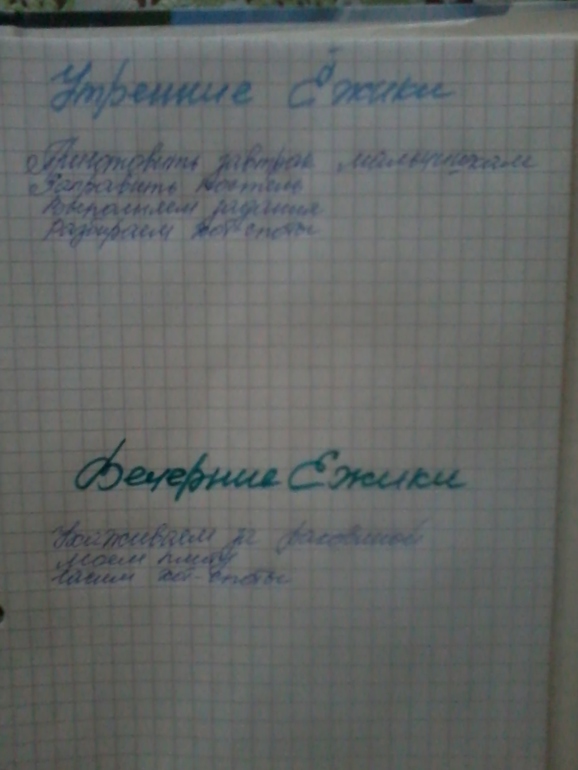 Утренние Ёжики
Приготовить завтрак мальчишкам
Заправить постель
Выполняем задания
Разбираем хот-споты
Вечерние Ежики
Ухаживаем за раковиной
Моем плиту
Гасим хот-споты